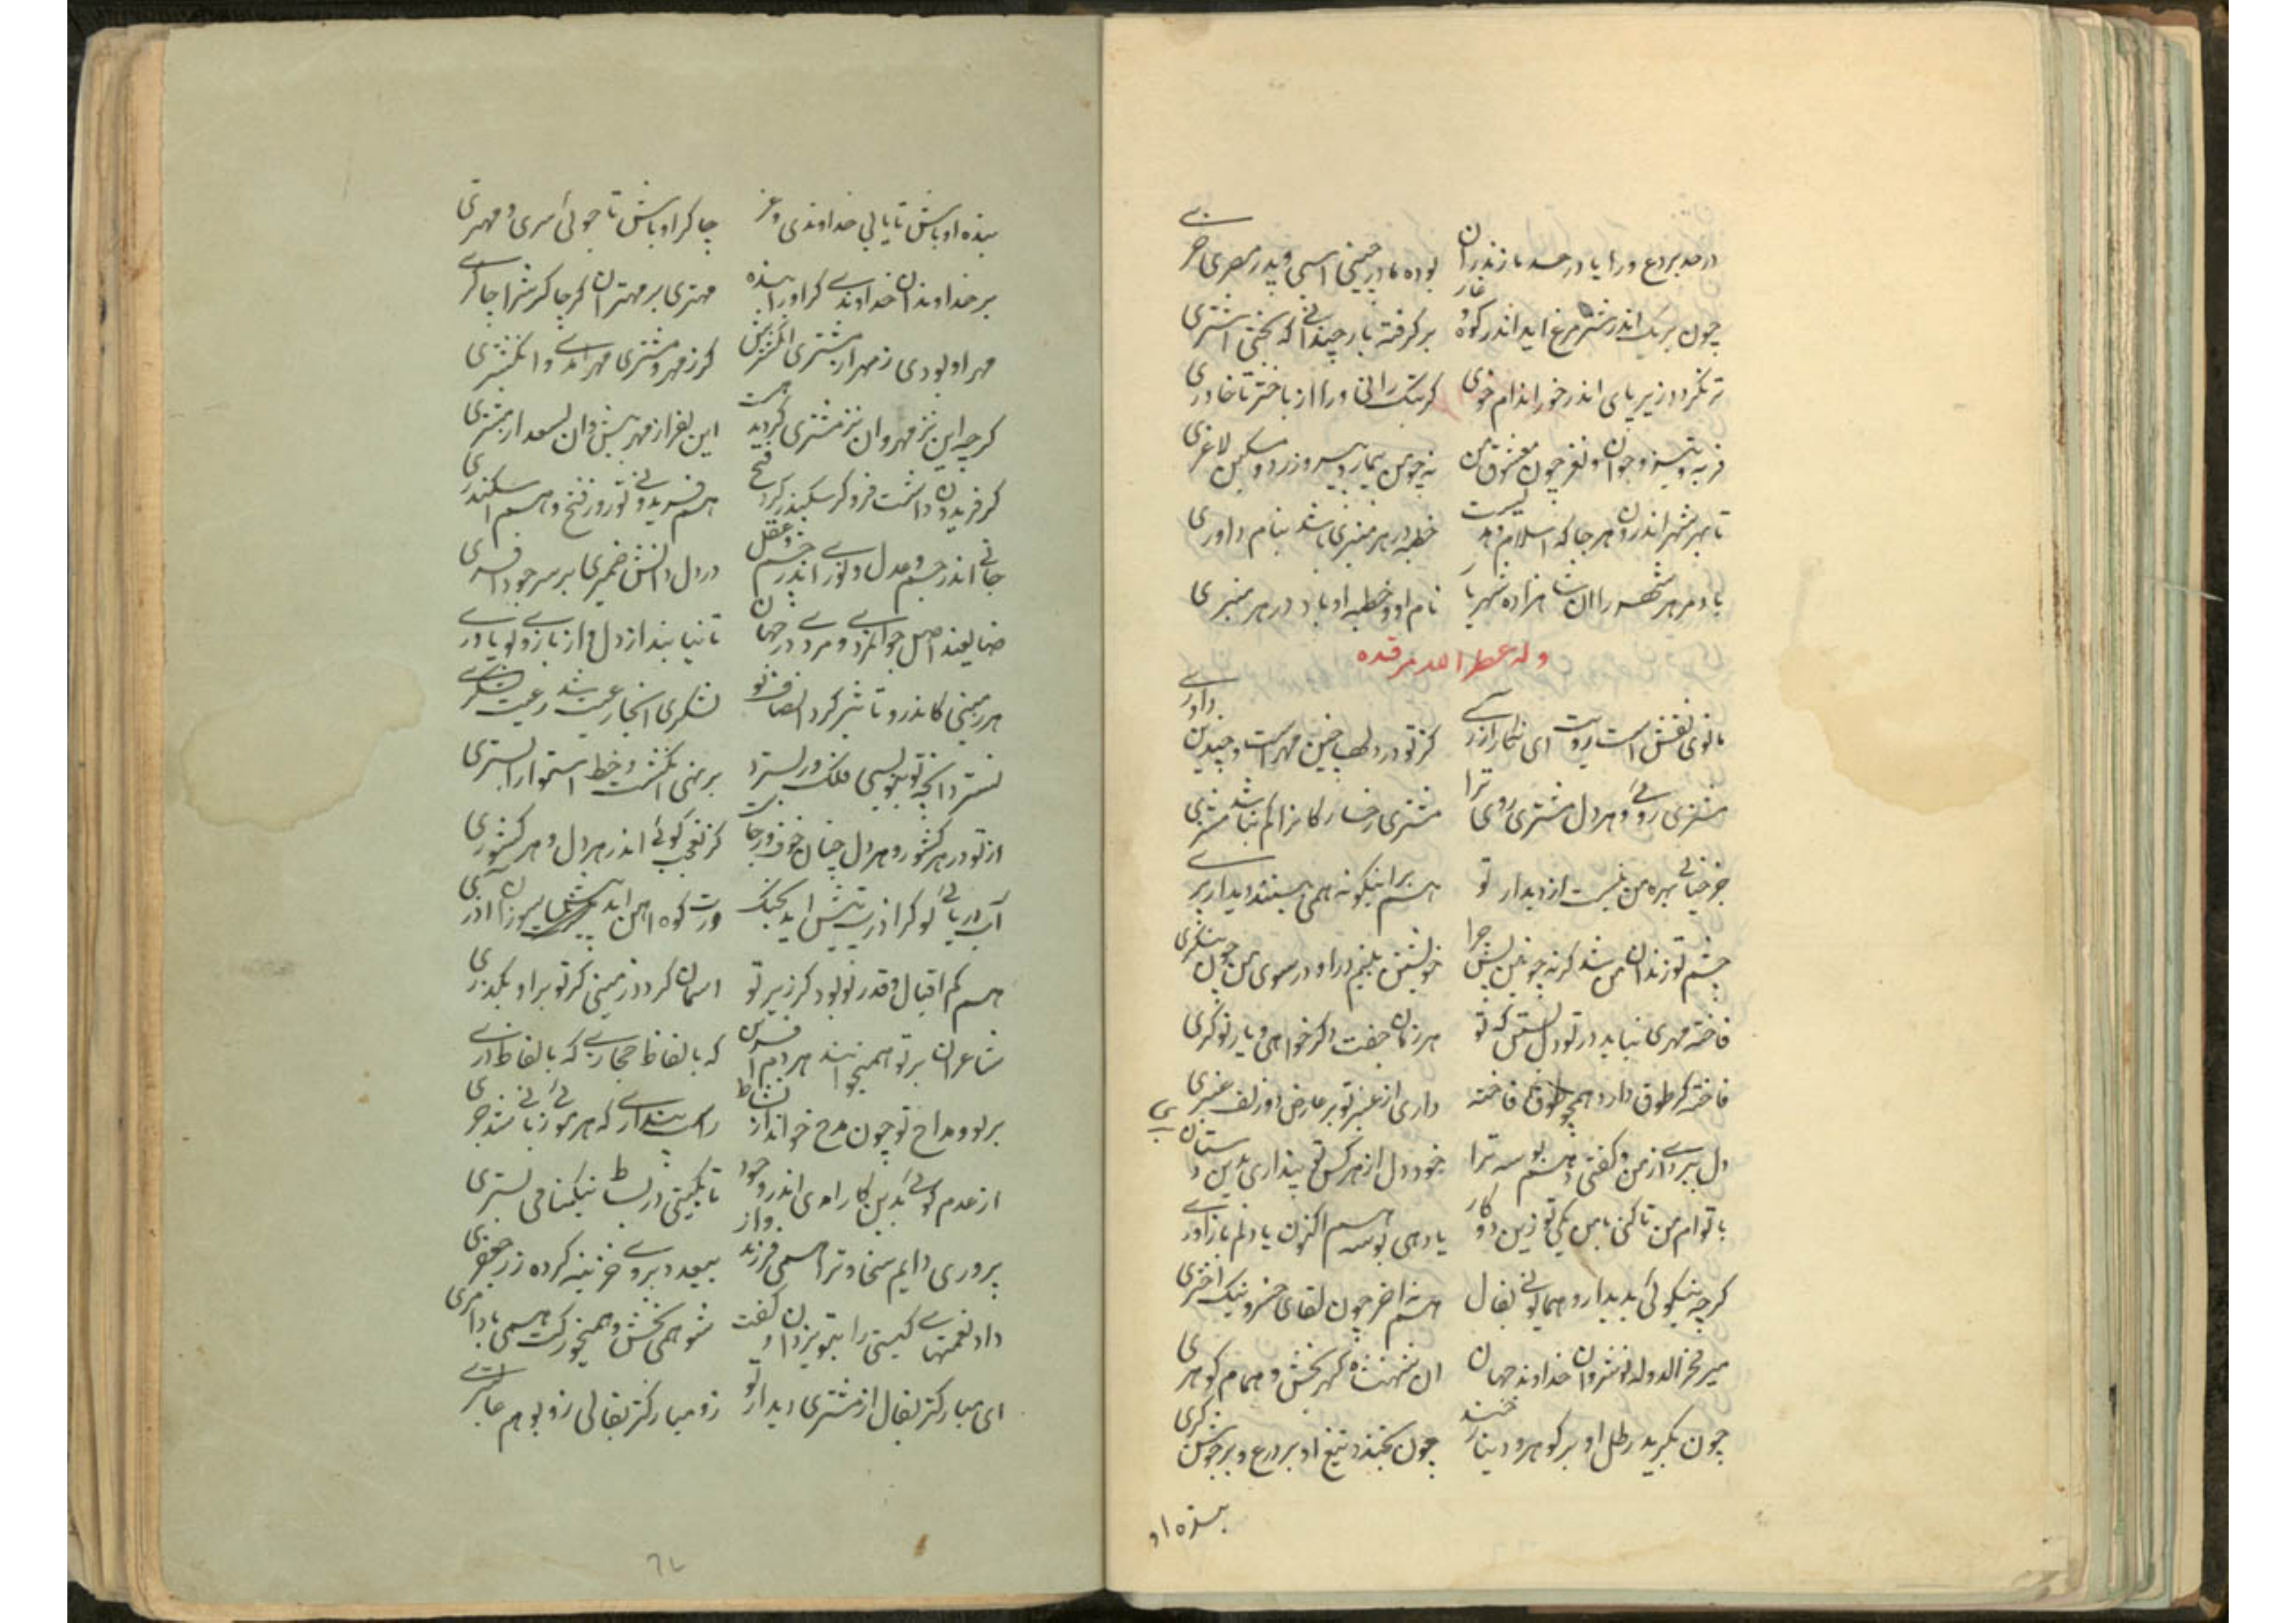 در حد بردع ورا یا در حد مازندران بوده مادر چینی اسبی و پدر مصری خری
چون بریک اندر شتر مرغ اید اندر کوه و غار برگرفته بار چندانی که بختی اشتری
تر نکردد زیر پای اندر خور اندام خوی کر بتک رانی ورا از باختر تا خاوری
فربه و تیز و جوان و نغز چون معشوق من نه چو من بیمار و پیر و زرد و مسکین لاغری
تا بهر شهر اندرون هر جا که اسلام و بهیست خطبه در هر منبری باشد بنام داوری
باد مر هر شهر را ان شاهزاده شهریار نام او و خطبه او باد در هر منبری
وله عطر الله مرقده
مانوی نقش است رویت ای نکار ازری کز تو در دلها چنین مهر است و چندین داوری
مشتری روئی و هر دل مشتری روی ترا مشتری رخسارکانرا کم نباشد مشتری
جز خیالی بهره من نیست از دیدار تو هم براینکونه همی بینند دیدار پری
چشم تو زندان من شد کرنه چونین پس چرا خویشتن بینم در او در سوی من چون بنکری
فاخته مهری نباید در تو دل بستن که تو هر زمان جفت دکر خواهی و یار نو کری
فاخته کر طوق دارد همچو طوق فاخته داری از عنبر تو بر عارض دو زلف عنبری
دل ببردی از من و کفتی دهم بوسه ترا خود دل از هر کس تو پنداری بدین دستان بری
با توام من تا کنی با من یکی تو زین دو کار یا دهی بوسه هم اکنون یا دلم باز اوری
کرچه نیکوئی بدیدار و همایونی بفال هم نه اخر چون لقای خسرو نیک اختری
میر فخر الدوله نوشروان خداوند جهان ان شهنشاه کهر بخش و همام کوهری
چون بکرید رطل او بر کوهر و دینار خند چون بخندد تیغ او بر درع و بر جوشن کری
بنده او
بنده او باش تا یابی خداوندی و عز چاکر او باش تا جوئی سری و مهتری
بر خداوندان خداوندی کر او را بنده مهتری بر مهتران کر چاکرش را چاکری
مهر او بودی ز مهر از مشتری انکشترش کر ز مهر و مشتری مهر امدی و انکشتری
کرچه این نز مهر و ان نز مشتری کردید هست این بفر از مهر بیش و ان بسعد از مشتری
کر فریدون داشت فر و کر سکندر کرد فتح هم فریدونی تو روز فتح و هم اسکندری
جانی اندر جسم عدل و نوری اندر چشم عقل در دل دانش ضمیری بر سر جود افسری
ضایعند اصل جوانمردی و مردی در جهان تا نیابند از دل و از بازوی تو یاوری
هر زمینی کاندرو تاثیر کرد انصاف تو لشکری انجا رعیت شد رعیت لشکری
نسترد انچه تو بنویسی فلک ور بسترد بر نهی انکشت و خط استوار ابستری
از تو در هر کشور و هر دل چنان خوف و رجاست کز تعجب کوئی اندر هر دل و هر کشوری
آب دریائی تو کر اذرت پیش اید بجنک ورت کوه اهن اید پیش سوزان آذری
هم کم اقبال و قدر تو بود کر زیر تو اسمان کردد زمینی کر تو بر او بکذری
شاعران بر تو همیخوانند هر دم افرین که بالفاظ حجازی که بالفاظ دری
بر تو و مداح تو چون مدح خواند از نشاط راست پنداری که هر موئی زبانی شد جری
از عدم کوئی بدین کار امدی اندر وجود تا بکیتی در بساط نیکنامی بستری
پروری دایم سخا و ترا همی فرزند وار بیعد و بروی خزینه کرده زر جعفری
داد نعمتهای کیتی را بتو یزدان و کفت شو همی بخش و همیخور کت همی بادا مری
ای مبارکتر بفال از مشتری دیدار تو زو مبارکتر بفالی زو بوهم عالی